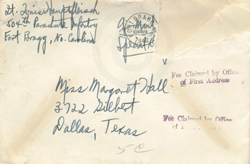 Lt.
504th Parachute Infantry
Fort Bragg, No. Carolina
Miss Margaret Hall
3722 Gilbert
Dallas, Texas
Fee Claimed by Office
of First Address
Fee Claimed by Office
of